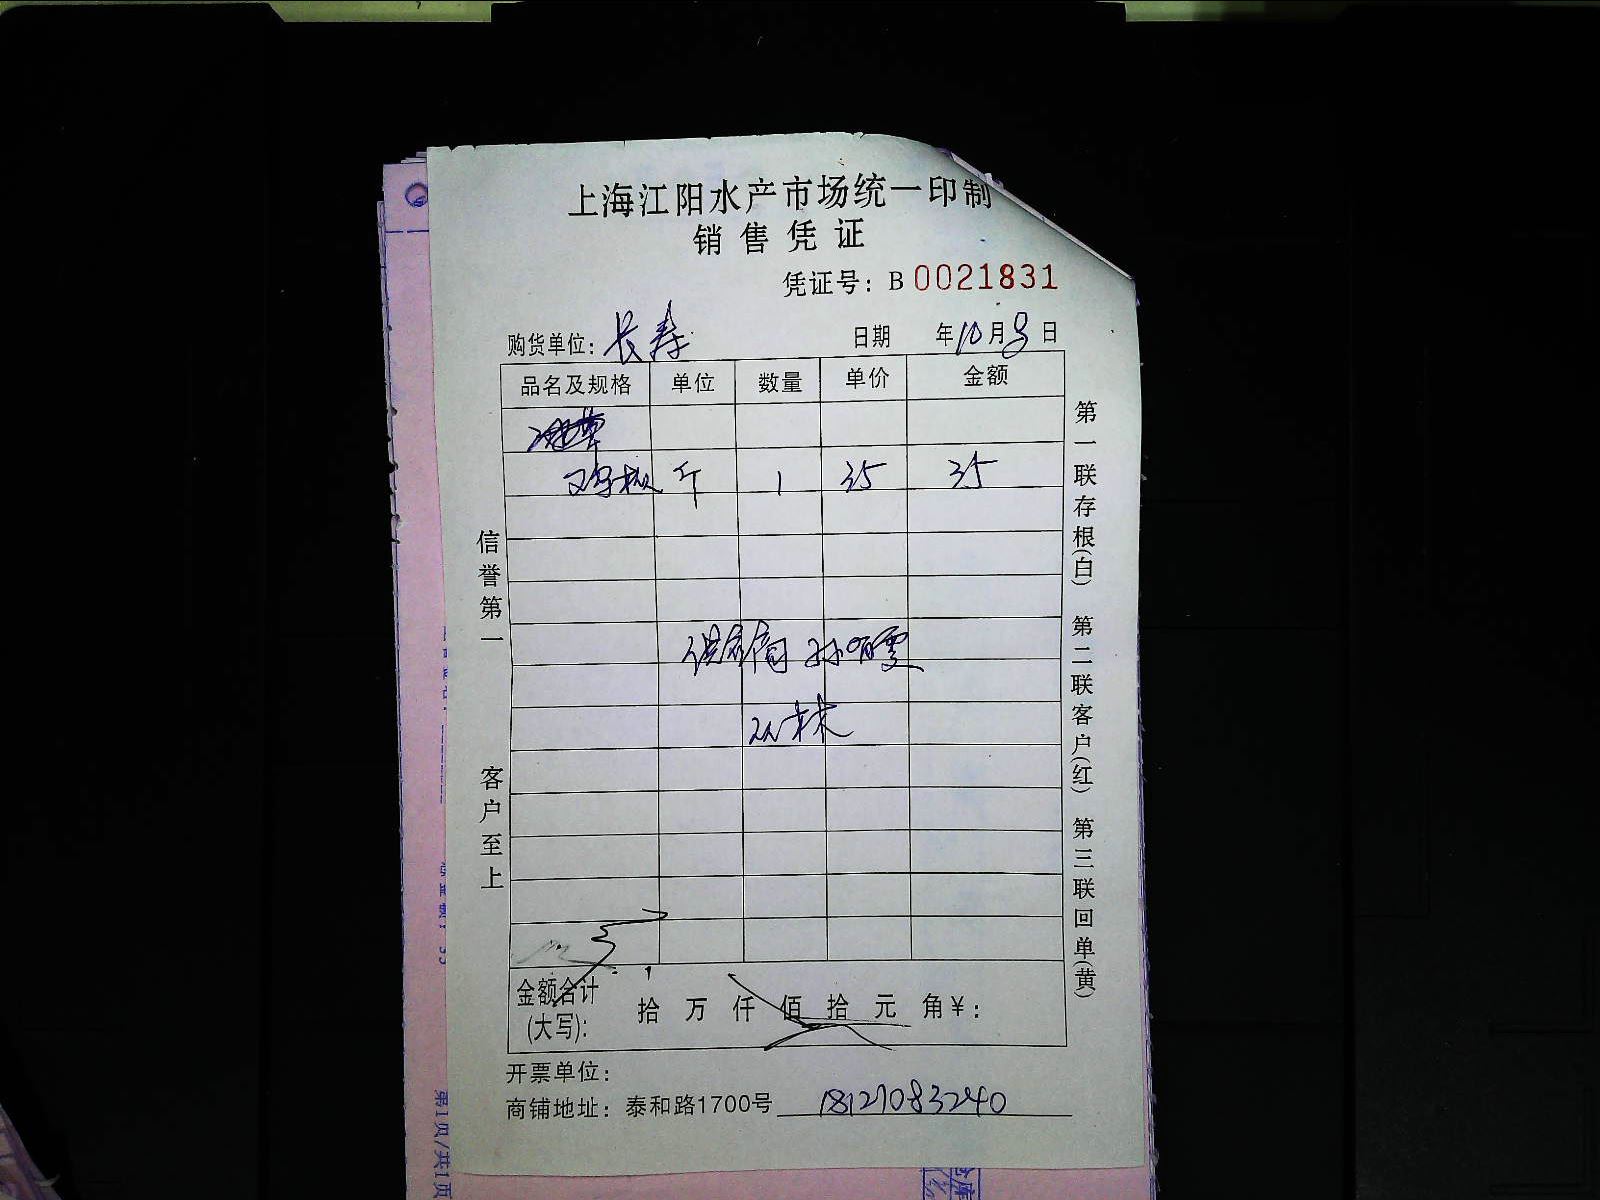 上海江阳水产市场统一印制
销售凭证
凭证号：B 0021831
购货单位：长寿 日期 年10月8日
品名及规格 单位 数量 单价 金额
斤 1 35 35
供应商 孙
信誉第一 客户至上
第一联存根(白) 第二联客户(红) 第三联回单(黄)
金额合计(大写)： 拾 万 仟 佰 拾 元 角￥：
开票单位：
商铺地址：泰和路1700号 18121083240
第1页/共1页